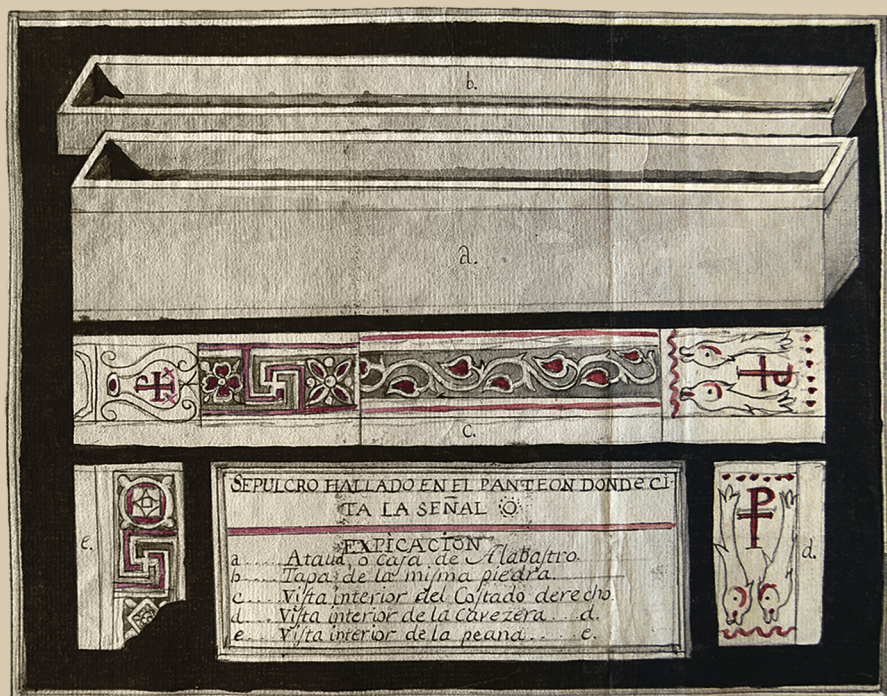 b.
a.
c.
e.
d.
SEPULCRO HALLADO EN EL PANTEON DONDe CI-
TA LA SEÑAL
EXPICACION
a ...... Ataud, ò caja de Alabastro.
b ...... Tapa de la misma piedra
c ...... Vista interior del Costado derecho.
d ...... Vista interior de la Cavezera ... d.
e ...... Vista interior de la peana ... e.